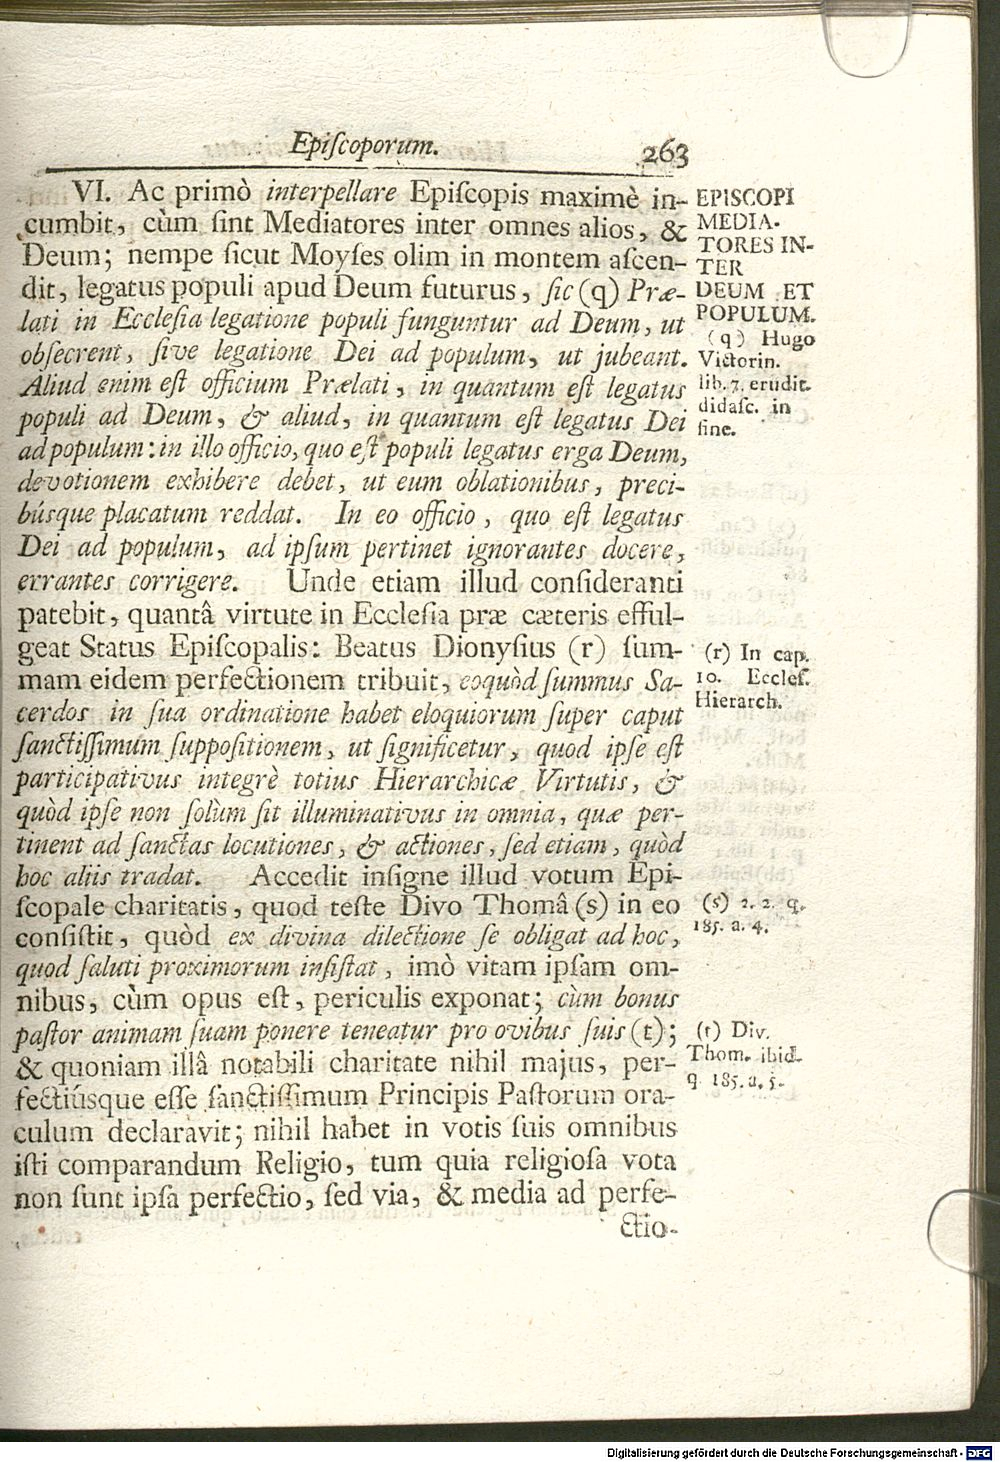 Epiſcoporum.
263
VI. Ac primò interpellare Epiſcopis maximè in-
cumbit, cùm ſint Mediatores inter omnes alios, &
Deum; nempe ſicut Moyſes olim in montem aſcen-
dit, legatus populi apud Deum futurus, ſic (q) Præ-
lati in Eccleſia legatione populi funguntur ad Deum, ut
obſecrent, ſive legatione Dei ad populum, ut jubeant.
Aliud enim eſt officium Prælati, in quantum eſt legatus
populi ad Deum, & aliud, in quantum eſt legatus Dei
ad populum: in illo officio, quo eſt populi legatus erga Deum,
devotionem exhibere debet, ut eum oblationibus, preci-
búsque placatum reddat. In eo officio, quo eſt legatus
Dei ad populum, ad ipſum pertinet ignorantes docere,
errantes corrigere. Unde etiam illud conſideranti
patebit, quantâ virtute in Eccleſia præ cæteris efful-
geat Status Epiſcopalis: Beatus Dionyſius (r) ſum-
mam eidem perfectionem tribuit, eoquòd ſummus Sa-
cerdos in ſua ordinatione habet eloquiorum ſuper caput
ſanctiſſimum ſuppoſitionem, ut ſignificetur, quod ipſe eſt
participativus integrè totius Hierarchicæ Virtutis, &
quòd ipſe non ſolùm ſit illuminativus in omnia, quæ per-
tinent ad ſanctas locutiones, & actiones, ſed etiam, quòd
hoc aliis tradat. Accedit inſigne illud votum Epi-
ſcopale charitatis, quod teſte Divo Thomâ (s) in eo
conſiſtit, quòd ex divina dilectione ſe obligat ad hoc,
quod ſaluti proximorum inſiſtat, imò vitam ipſam om-
nibus, cùm opus eſt, periculis exponat; cùm bonus
paſtor animam ſuam ponere teneatur pro ovibus ſuis (t);
& quoniam illâ notabili charitate nihil majus, per-
fectiúsque eſſe ſanctiſſimum Principis Paſtorum ora-
culum declaravit; nihil habet in votis ſuis omnibus
iſti comparandum Religio, tum quia religioſa vota
non ſunt ipſa perfectio, ſed via, & media ad perfe-
ctio-
EPISCOPI
MEDIA-
TORES IN-
TER
DEUM ET
POPULUM.
(q) Hugo
Victorin.
lib. 7. erudit.
didaſc. in
fine.
(r) In cap.
10. Eccleſ.
Hierarch.
(s) 2. 2. q.
185. a. 4.
(t) Div.
Thom. ibid.
q 185. a. 5.
Digitalisierung gefördert durch die Deutsche Forschungsgemeinschaft - DFG